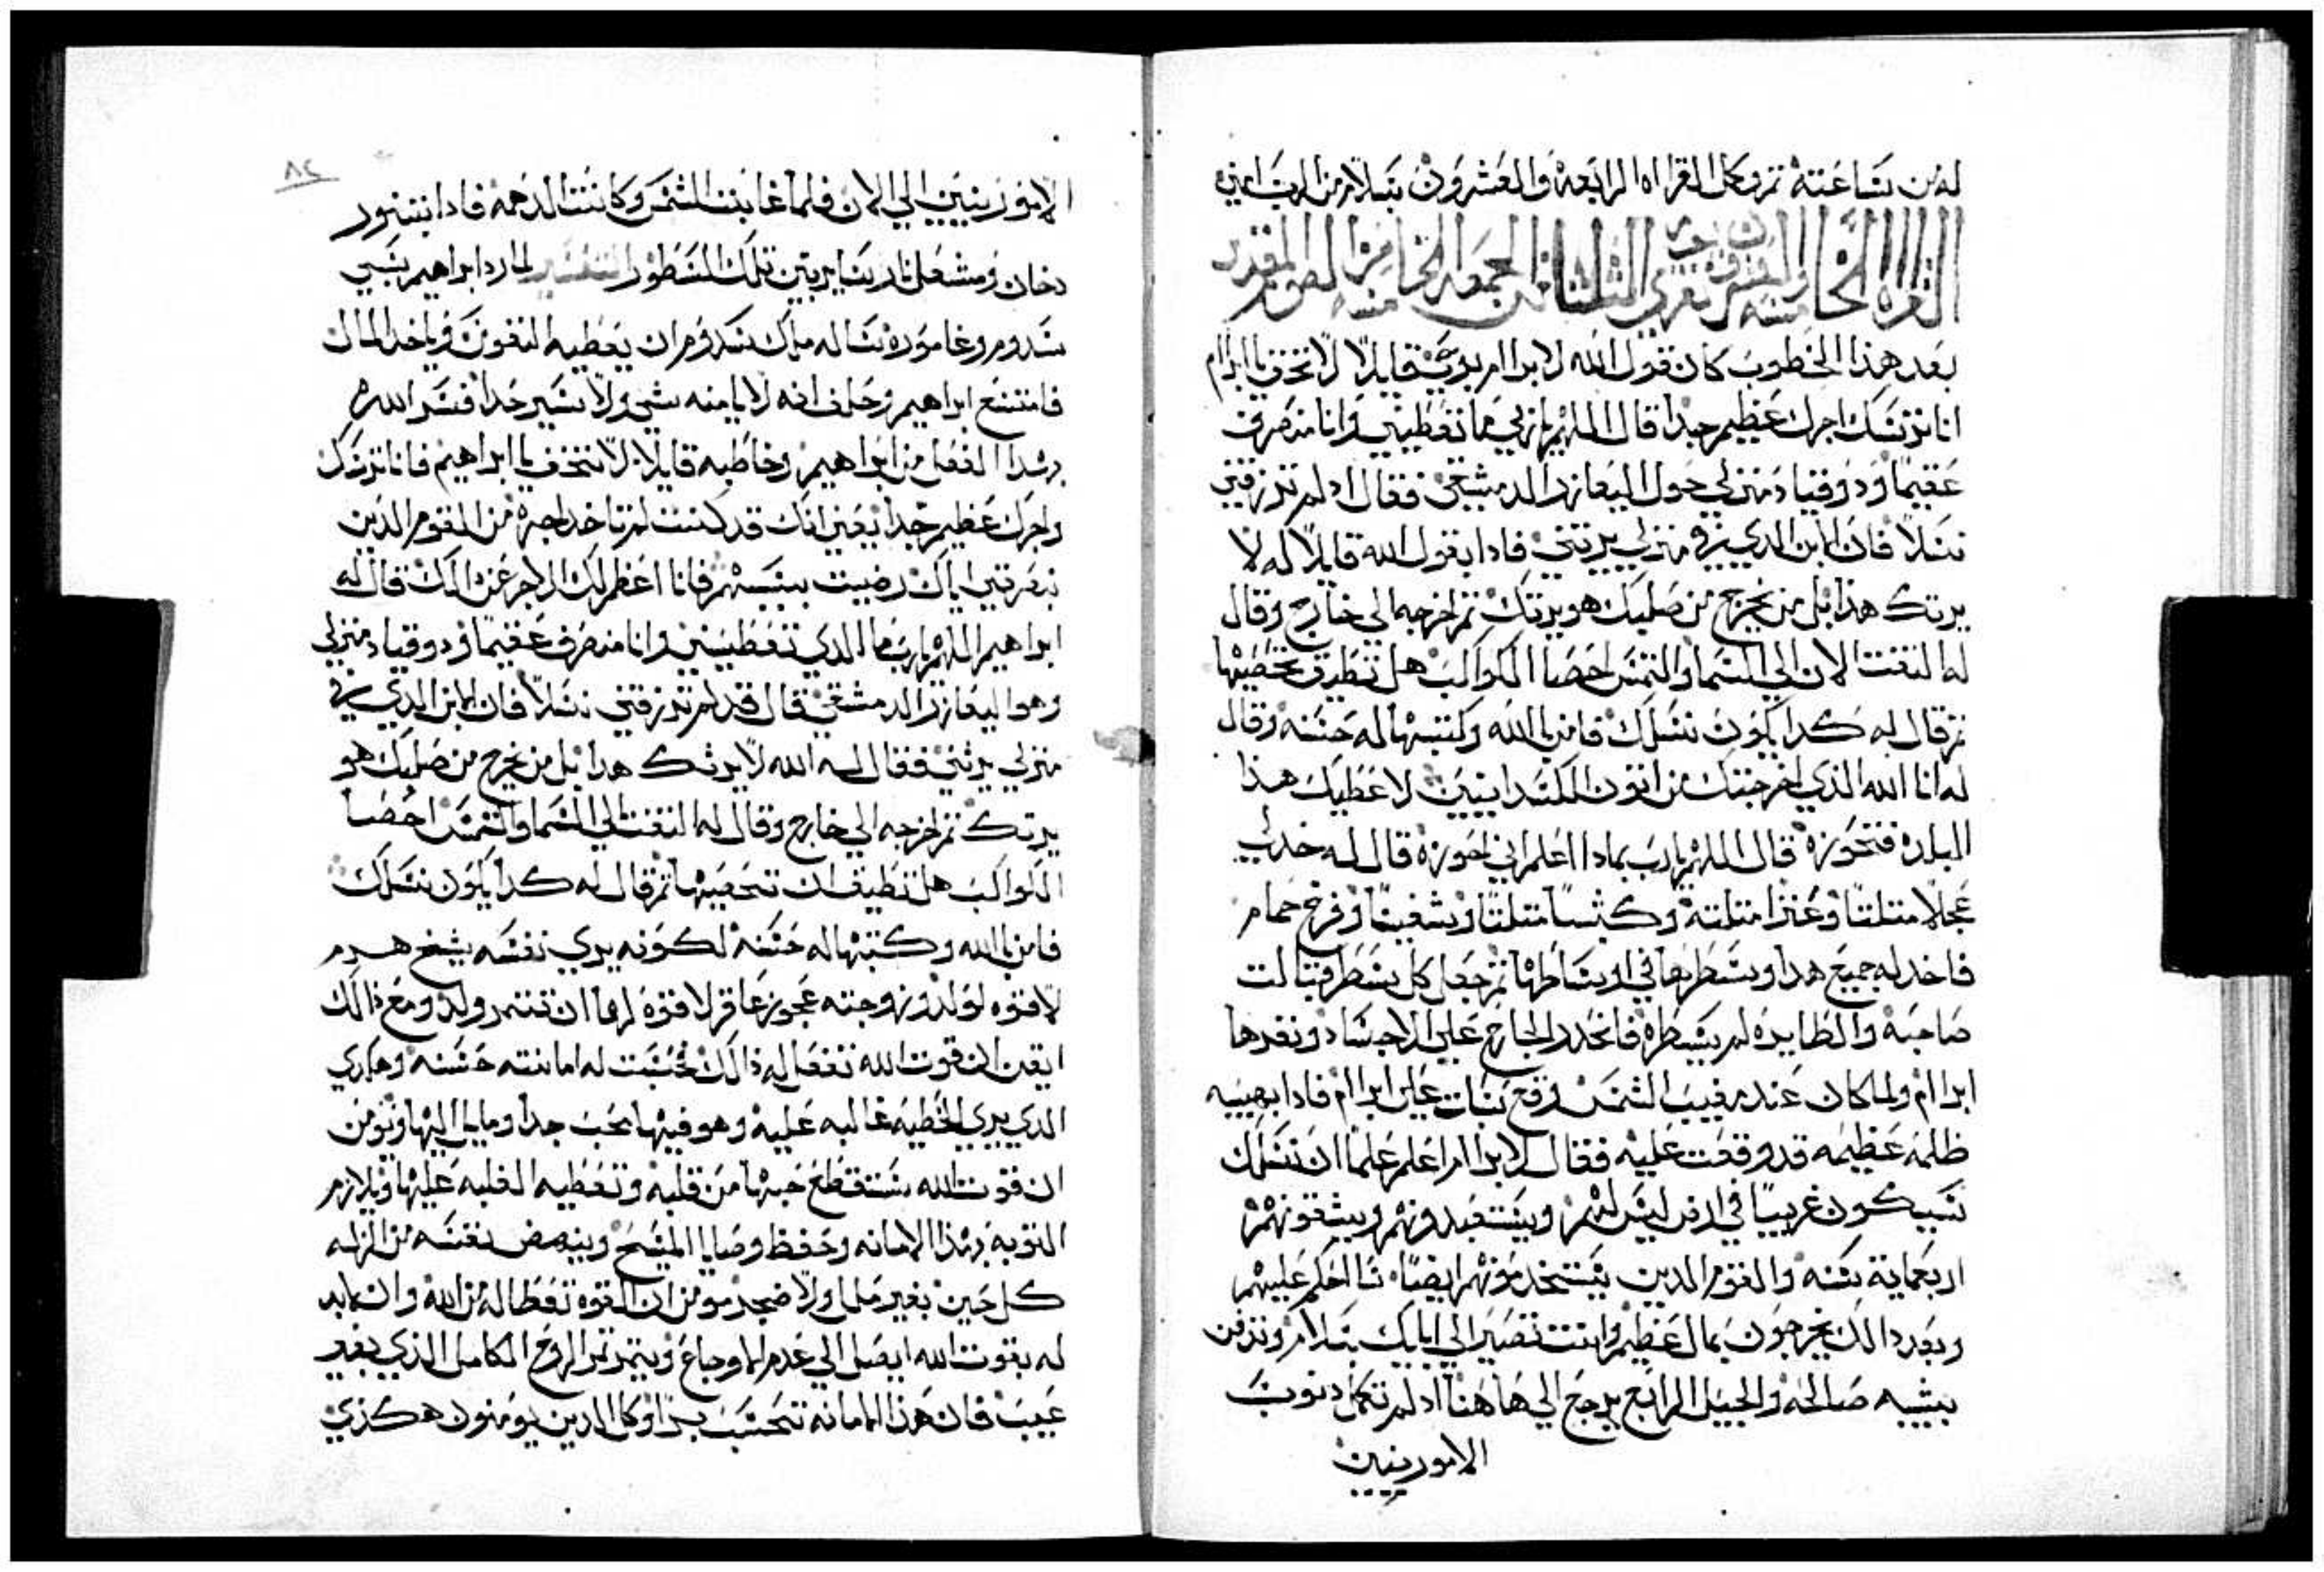 له من ساعته تم وكل القراه الرابعه والعشرون بسلام من الرب امين
القراه الخامسه والعشرون تقري الثلثا من الجمعه الخامسه من الصوم المقدس
بعد هذا الخطوب كان قول الله لابرام بروحي قايلا لا تخف يا ابرام
انا ترسك اجرك عظيم جدا قال اللهم يا ربي ما تعطيني وانا منصرف
عقيما ودوقنا دمنزلي حول اليعازر الدمشقي فقال اد لم ترزقني
نسلا فان الابن الدي في منزلي يرتني فادا بقول الله قايلا له لا
يرتك هدا بل من يخرج من صلبك هو يرتك تم اخرجه الي خارج وقال
له التفت الان الي السما والتمس احصا الكواكب هل تطيق تحصيها
تم قال له كدا يكون نسلك فامن بالله وكتبها له حسنه وقال
له انا الله الدي اخرجتك من اتون الكلدانيين لاعطيك هذا
البلد فتحوزه قال اللهم يا رب بمادا اعلم اني احوزه قال له خد لي
عجلا متلتا وعنزا متلته وكبشا متلتا وشفنينا وفرخ حمام
فاخد له جميع هدا وشطرها في اوساطها تم جعل كل شطر قبالت
صاحبه والطايره لم يشطره فانحدر الجارح علي الاجساد ونفرها
ابرام ولما كان عند مغيب الشمس وقع سبات علي ابرام فادا بهيبه
ظلمه عظيمه قد وقعت عليه فقال لابرام اعلم علما ان نسلك
سيكون غريبا في ارض ليس لهم ويستعبدونهم ويشقونهم
اربعماية سنه والقوم الدين يستخدمونهم ايضا انا احكم عليهم
وبعد دالك يخرجون بمال عظيم وانت تصير الي ابايك بسلام وتدفن
بشيبه صالحه والجيل الرابع يرجع الي هاهنا اد لم تكمل دنوب
الامورنيين
٨٢
الامورنيين الي الان فلما غابت الشمس وكانت الدهمه فادا بتنور
دخان ومشعل نار ساير بين تلك الشطور التفسير لما رد ابراهيم سبي
سدوم وغاموره ساله ملك سدوم ان يعطيه النفوس وياخد المال
فامتنع ابراهيم وحلف انه لا يا منه شي ولا يسير جدا فسر الله
بهدا الفعل من ابراهيم وخاطبه قايلا لا تخف يا ابراهيم فانا ترسك
واجرك عظيم جدا يعني انك قد كنت لم تاخد اجره من القوم الدين
نصرتهم اياك رضيت بسببهم فانا اعظم لك الاجر عن دالك قال له
ابراهيم اللهم يا رب ما الدي تعطيني وانا منصرف عقيما ودوقنا دمنزلي
وهو اليعازر الدمشقي قال قد لم ترزقني نسلا فان الابن الدي في
منزلي يرثني فقال له الله لا يرثك هدا بل من يخرج من صلبك هو
يرتك تم اخرجه الي خارج وقال له التفت الي السما والتمس احصا
الكواكب هل تطيق ان تحصيها تم قال له كدا يكون نسلك
فامن بالله وكتبها له حسنه لكونه يري نفسه شيخ هرم
لا قوه لولد وزوجته عجوز عاقر لا قوه لها ان تتمر ولد ومع دالك
ايقن ان قوت الله تفعل له دالك فحسبت له امانته حسنه وهكدي
الدي يري الخطيه غالبه عليه وهو فيها يحب جدا ومايل اليها ويومن
ان قوت الله ستقطع حبها من قلبه وتعطيه الغلبه عليها ويلازم
التوبه بهدا الامانه وحفظ وصايا المسيح وينهض نفسه من الزله
كل حين بغير ملل ولا ضجر مومن ان القوه تعطا له من الله وان لا بد
له بقوت الله ايصل الي عدم الاوجاع ويتمر تمر الروح الكامل الذي بغير
عيب فان هذا الامانه تحسب برا وكل الدين يومنون هكذي